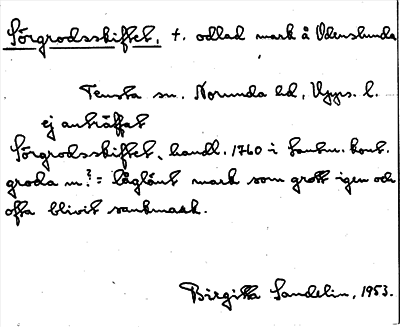 Sörgrodsskiftet, t. odlad mark å Odenslunda
Tensta sn. Norunda hd, Upps. l.
ej anträffat
Sörgrodsskiftet, handl. 1760 i Lantm. kont.
groda m? = låglänt mark som grott igen och
ofta blivit sankmark.
Birgitta Sandelin, 1953.